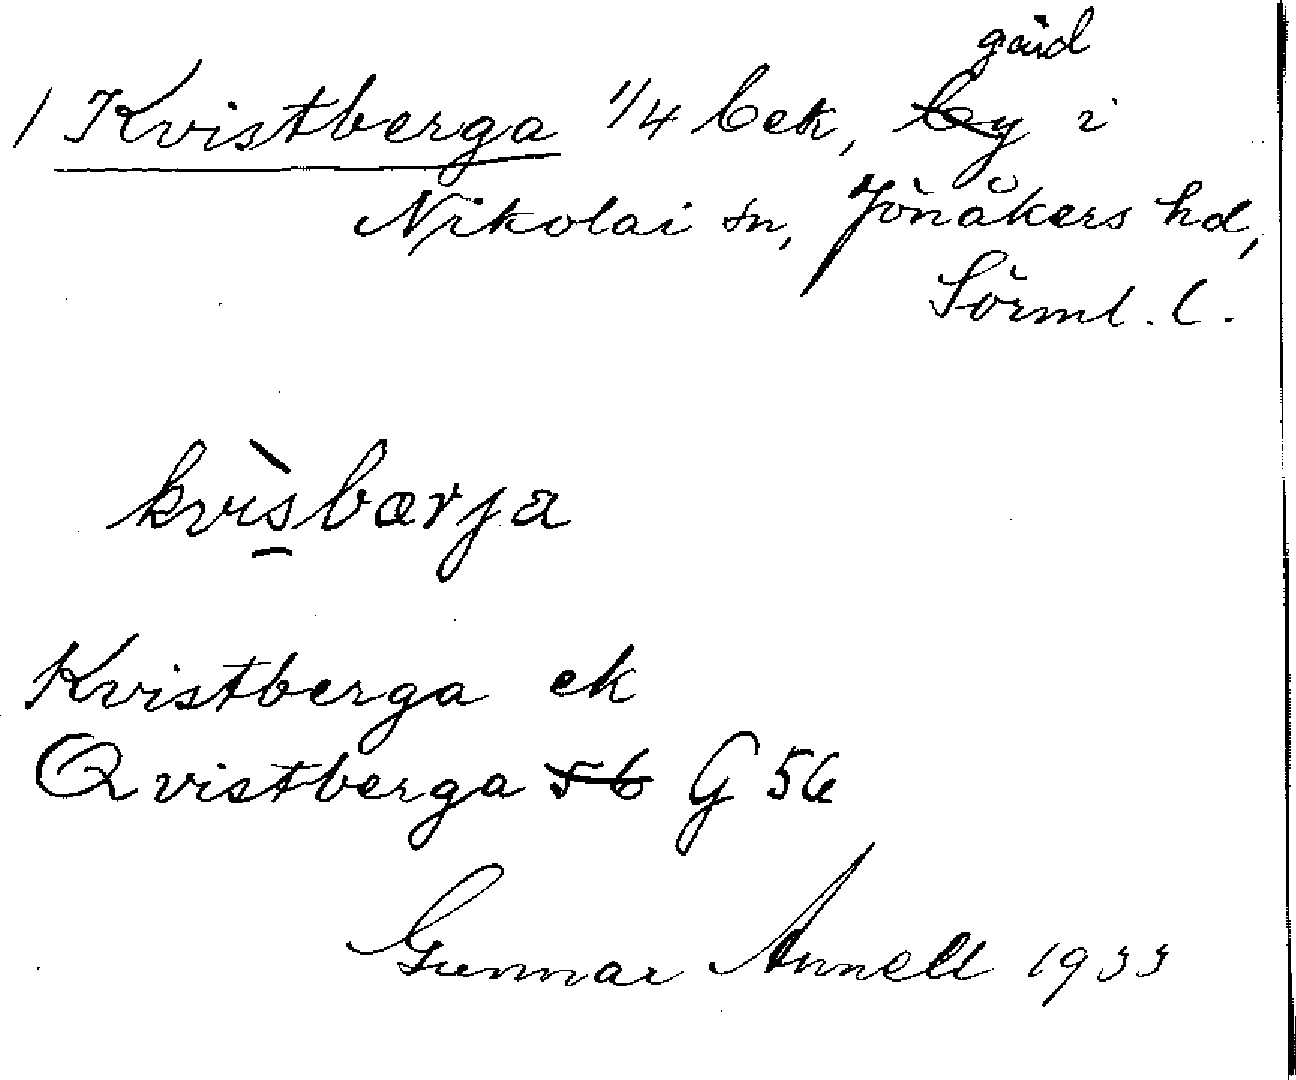 gård
1 Kvistberga 1/4 bek, by i
Nikolai sn, Jönåkers hd,
Sörml. l.
kvìsbærja
Kvistberga ek
Qvistberga 56 G 56
Gunnar Annell 1933